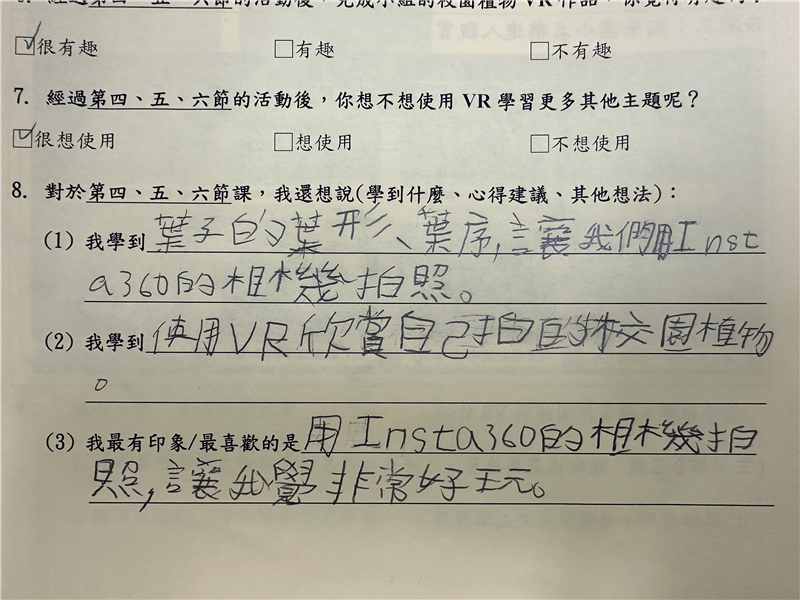 6. 經過第四、五、六節的活動後，完成小組的校園植物VR作品，你覺得有趣嗎？
☑很有趣 □有趣 □不有趣
7. 經過第四、五、六節的活動後，你想不想使用 VR 學習更多其他主題呢？
☑很想使用 □想使用 □不想使用
8. 對於第四、五、六節課，我還想說(學到什麼、心得建議、其他想法)：
(1) 我學到葉子的葉形、葉序,讓我們用Inst
a360的相機拍照。
(2) 我學到使用VR欣賞自己拍的校園植物
。
(3) 我最有印象/最喜歡的是用Insta360的相機拍
照,讓我覺非常好玩。